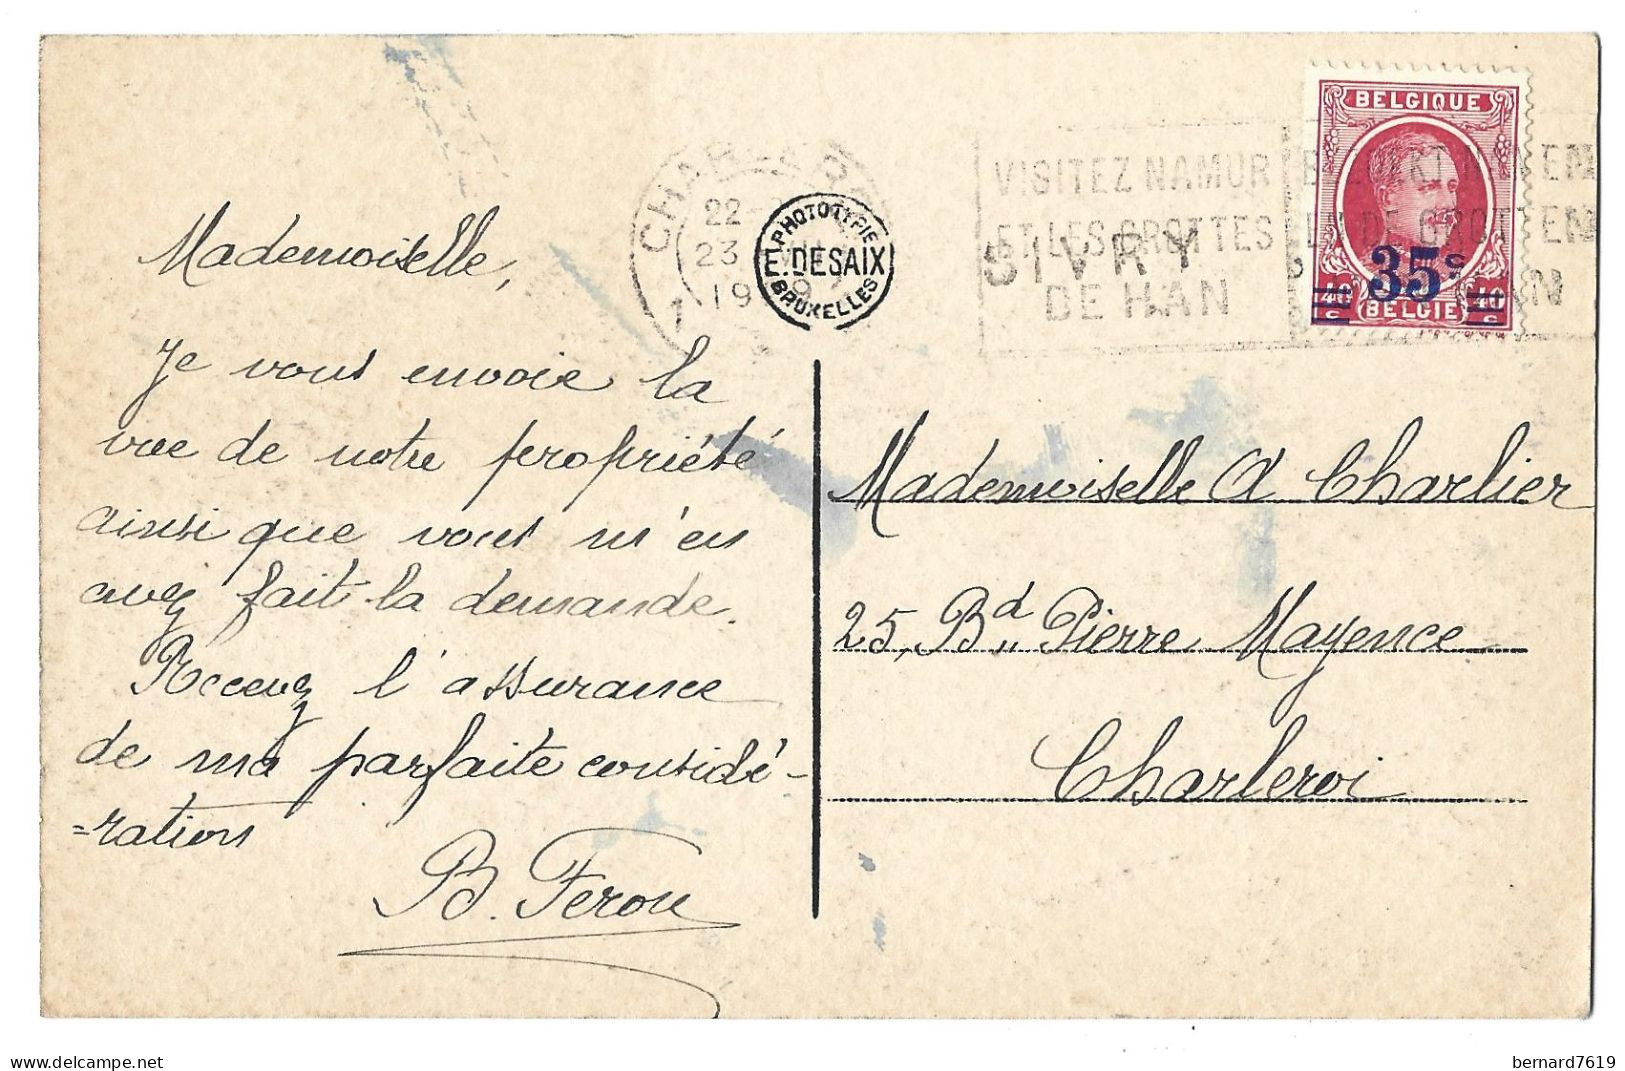 Mademoiselle,
Je vous envoie la
vue de notre propriété
ainsi que vous m'en
avez fait la demande.
Recevez l'assurance
de ma parfaite considé-
=ration
B. Ferou
22
23
19
1
PHOTOTYPIE
E. DESAIX
BRUXELLES
VISITEZ NAMUR
ET LES GROTTES
DE HAN
SIVRY
BELGIQUE
35c
40 c
BELGIE
40 c
Mademoiselle A Charlier
25, Bd. Pierre Mayence
Charleroi
bernard7619